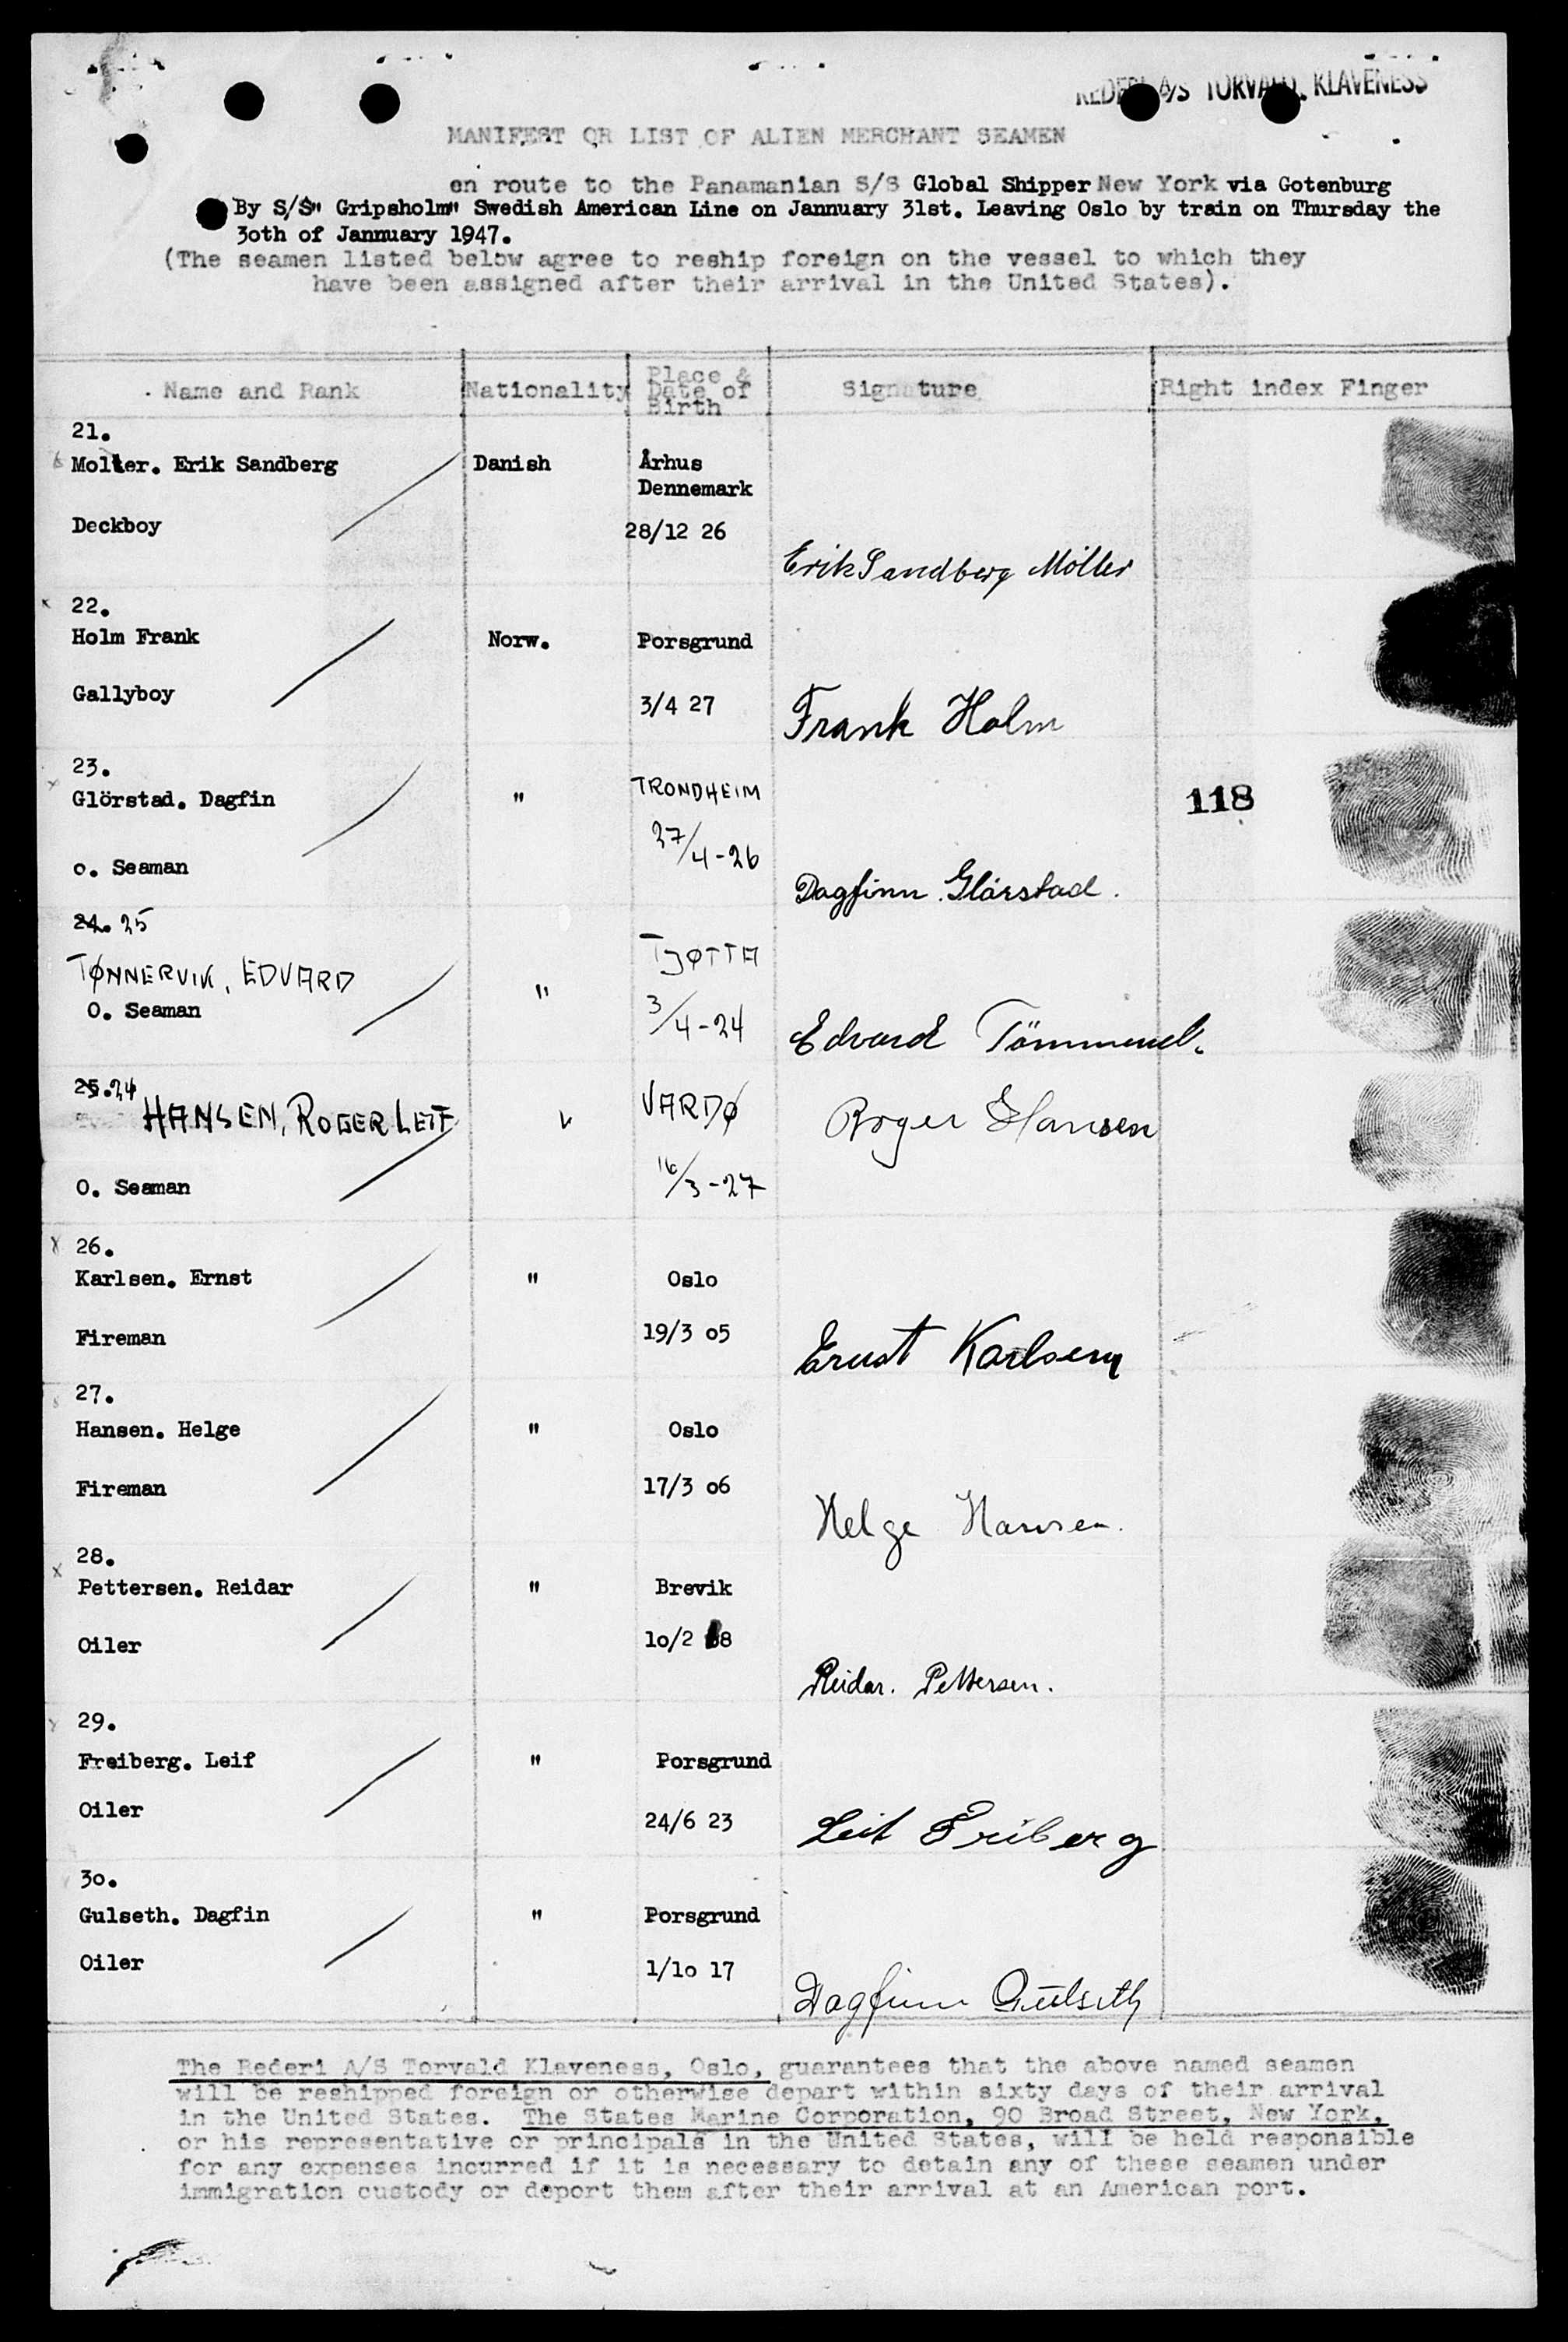 REDERI A/S TORVALD KLAVENESS
MANIFEST OR LIST OF ALIEN MERCHANT SEAMEN
en route to the Panamanian S/S Global Shipper New York via Gotenburg
By S/S" Gripsholm" Swedish American Line on Jannuary 31st. Leaving Oslo by train on Thursday the
3oth of Jannuary 1947.
(The seamen listed below agree to reship foreign on the vessel to which they
have been assigned after their arrival in the United States).
Name and Rank Nationality Place & Date of Birth Signature Right index Finger
21.
Molter. Erik Sandberg Danish Århus
Dennemark
Deckboy 28/12 26
Erik Sandberg Möller
22.
Holm Frank Norw. Porsgrund
Gallyboy 3/4 27
Frank Holm
23.
Glörstad. Dagfin " TRONDHEIM 118
27/4-26
o. Seaman
Dagfinn. Glörstad.
24. 25
TØNNERVIK, EDVARD " TJØTTA
O. Seaman 3/4-24
Edvard
25.24
HANSEN, ROGER LEIF " VARDØ Roger Hansen
O. Seaman 16/3-27
26.
Karlsen. Ernst " Oslo
Fireman 19/3 o5
Ernst Karlsen
27.
Hansen. Helge " Oslo
Fireman 17/3 o6
Helge Hansen.
28.
Pettersen. Reidar " Brevik
Oiler 1o/2 8
Reidar. Pettersen.
29.
Freiberg. Leif " Porsgrund
Oiler 24/6 23
Leif Friberg
3o.
Gulseth. Dagfin " Porsgrund
Oiler 1/1o 17
Dagfinn Gulseth
The Rederi A/S Torvald Klaveness, Oslo, guarantees that the above named seamen
will be reshipped foreign or otherwise depart within sixty days of their arrival
in the United States. The States Marine Corporation, 90 Broad Street, New York,
or his representative or principals in the United States, will be held responsible
for any expenses incurred if it is necessary to detain any of these seamen under
immigration custody or deport them after their arrival at an American port.